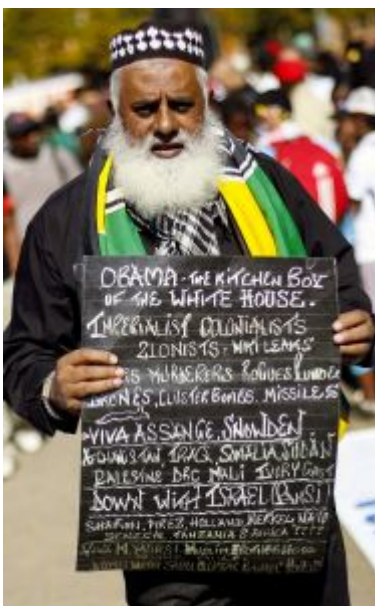 OBAMA - THE KITCHEN BOY
OF THE WHITE HOUSE.
IMPERIALIST COLONIALISTS
ZIONISTS - WIKI LEAKS
MURDERERS ROGUES
DRONES, CLUSTER BOMBS. MISSILES
VIVA ASSANGE, SNOWDEN
AFGHANISTAN IRAQ, SOMALIA SUDAN
PALESTINE DRC MALI IVERY COAST
DOWN WITH ISRAEL
SHARON, PEREZ, HOLLAND, MERKEL
TANZANIA
MURSI MUSLIM BROTHERHOOD